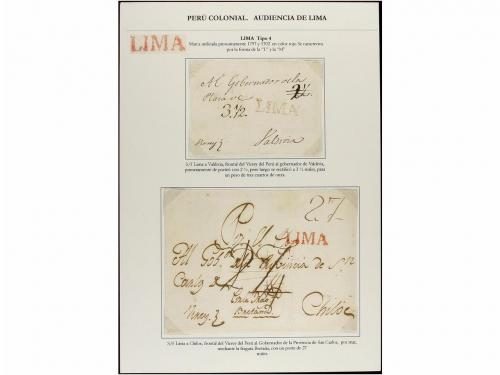 PERÚ COLONIAL. AUDIENCIA DE LIMA
LIMA
LIMA Tipo 4
Marca utilizada presuntamente 1797 y 1702 en color rojo. Se caracteriza
por la forma de la "L" y la "M"
Al Gobernador de la
Plaza de
3.½.
LIMA
Valdivia
S/F Lima a Valdivia, frontal del Virrey del Perú al gobernador de Valdivia,
primeramente de porteó con 2 ½, pero luego se rectificó a 3 ½ reales, para
un peso de tres cuartos de onza.
27
LIMA
Al Gobr. de la Provincia de Sn
Carlos de
Chiloe
Bretaña
S/F Lima a Chiloe, frontal del Virrey del Perú al Gobernador de la Provincia de San Carlos, por mar,
mediante la fragata Bretaña, con un porte de 27
reales.